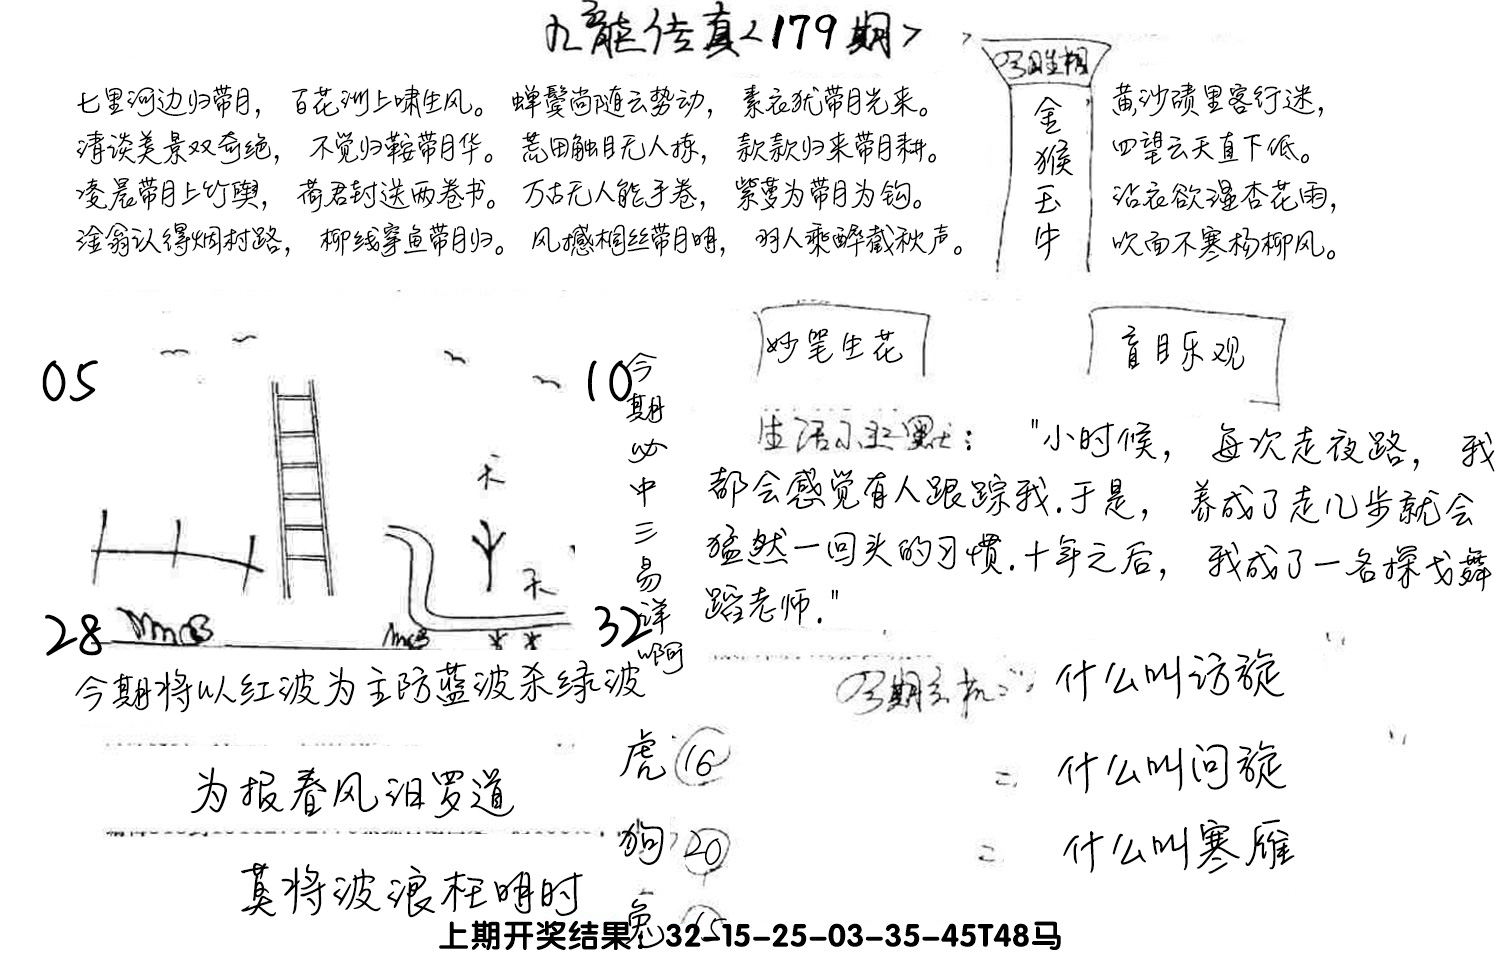 九龙传真<179期>
七里河边归带月，百花洲上啸生风。蝉鬓尚随云势动，素衣犹带月光来。
清谈美景双奇绝，不觉归鞍带月华。荒田触目无人拣，款款归来带月耕。
凌晨带月上竹舆，荷君封送两卷书。万古无人能手卷，紫萝为带月为钩。
淦翁认得烟村路，柳线穿鱼带月归。风撼桐丝带月明，羽人乘醉截秋声。
今期生相
金猴玉牛
黄沙碛里客行迷，
四望云天直下低。
沾衣欲湿杏花雨，
吹面不寒杨柳风。
妙笔生花
盲目乐观
05
10
28
32
天
天
今期必中三易详啊
生活小幽默："小时候，每次走夜路，我
都会感觉有人跟踪我.于是，养成了走几步就会
猛然一回头的习惯.十年之后，我成了一名探戈舞
蹈老师."
今期将以红波为主防蓝波杀绿波
为报春风汨罗道
莫将波浪枉明时
虎 16
狗 20
兔 15
今期玄机：什么叫访旋
= 什么叫问旋
= 什么叫寒雁
上期开奖结果：32-15-25-03-35-45T48马